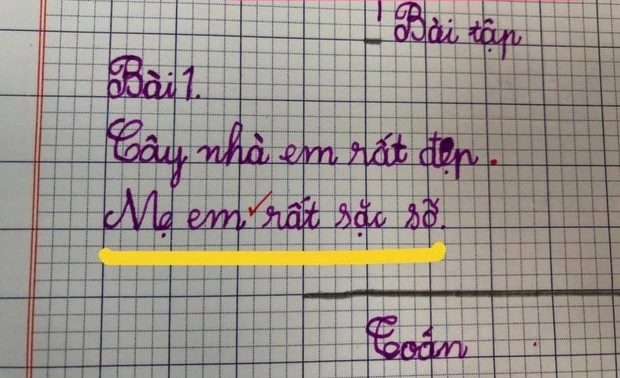 Bài tập
Bài 1.
Cây nhà em rất đẹp.
Mẹ em rất sặc sỡ.
Toán